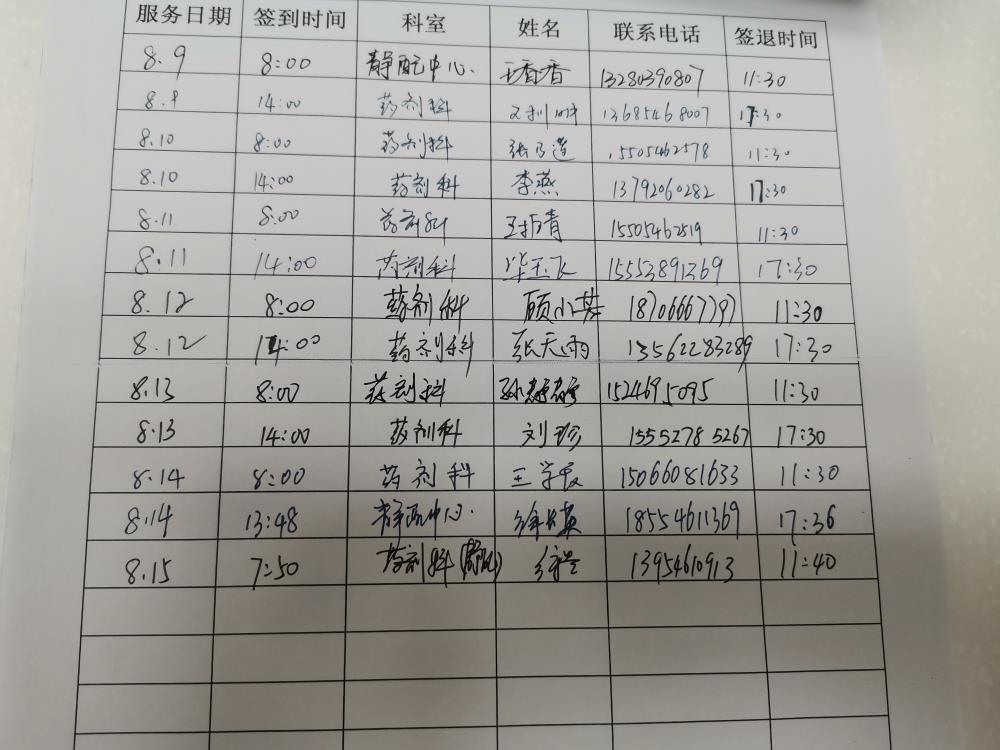 服务日期 签到时间 科室 姓名 联系电话 签退时间
8.9 8:00 静配中心. 王香香 13280390807 11:30
8.9 14:00 药剂科 13685468007 17:30
8.10 8:00 药剂科 15505462578 11:30
8.10 14:00 药剂科 李燕 13792060282 17:30
8.11 8:00 药剂科 15505462519 11:30
8.11 14:00 药剂科 毕玉飞 15553891269 17:30
8.12 8:00 药剂科 顾小芸 18706667797 11:30
8.12 14:00 药剂科 张天雨 13562283289 17:30
8.13 8:00 药剂科 1524695095 11:30
8.13 14:00 药剂科 刘珍 15552785267 17:30
8.14 8:00 药剂科 王学长 15066081633 11:30
8.14 13:48 静配中心. 18554611369 17:36
8.15 7:50 药剂科(静配) 13954610913 11:40